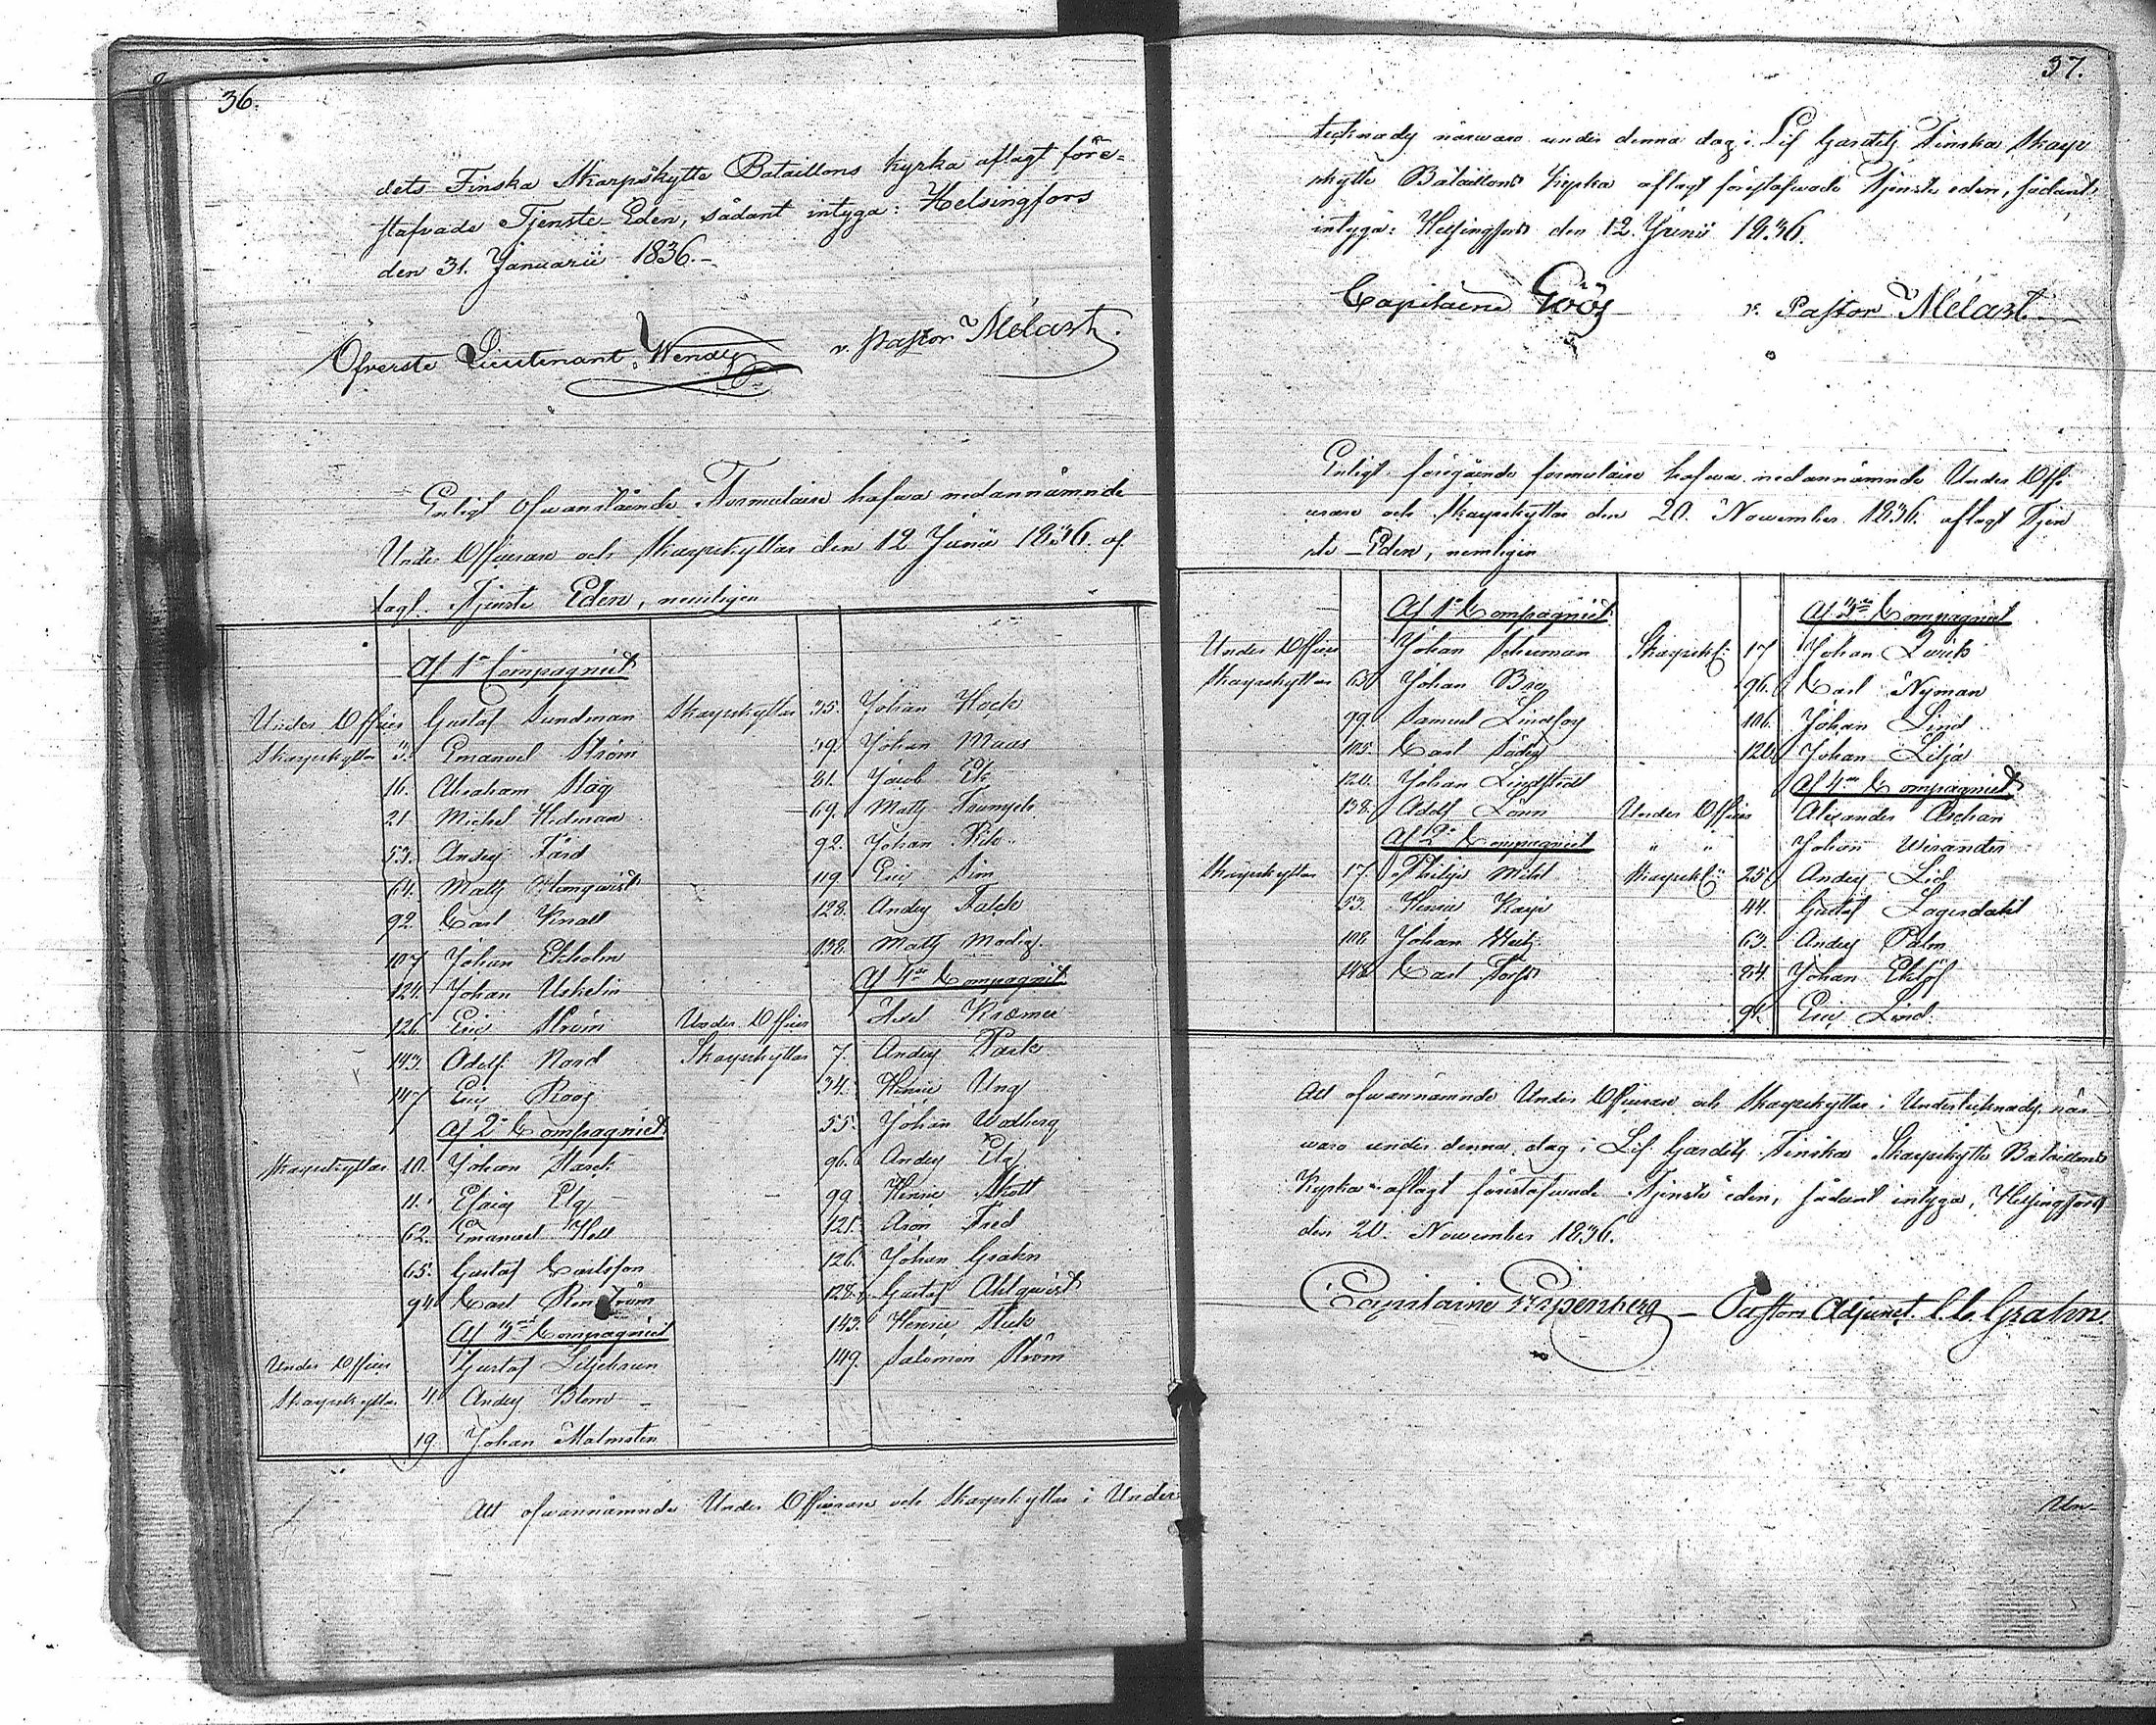 36.
dets Finska Skarpskytte Bataillons kyrka aflagt före-
stafvade Tjenste-Eden, sådant intyga: Helsingfors
den 31. Januarii 1836.
Öfverste Lieutenant. v. Pastor Melart.
Enligt ofwanstående Formulaire hafwa nedannämnde
Under Officerare och Skarpskyttar den 12 Junii 1836. af
lagt. Tjenste Eden, nemligen
Af 1a Compagniet
Under Officer Gustaf Sundman
Skarpskyttar 3. Emanuel Ström
16. Abraham Stag
21. Michel Hedman
53. Anders Färd
64. Matts Holmqvist
92. Carl Knall
107 Johan Ekholm
124. Johan Uskelin
126. Eric Ström
143. Adolf Nord
147 Eric Roos
Af 2a Compagniet
Skarpskyttar 10. Johan Starck
11. Esaias Elg
62. Emanuel Hell
65. Gustaf Carlsson
94 Carl
Af 3ie Compagniet
Under Officer Gustaf Liljebrun
Skarpskyttar 4. Anders Blom
19. Johan Malmsten
Skarpskyttar 35. Johan Hack
39. Johan Maas
Jacob Ek
69. Matts Trumpet
92. Johan
119 Eric
128. Anders Falck
132. Matts Modig.
Af 4de Compagniet
Under Officer Axel Kræmer
Skarpskyttar 7. Anders Park
34. Henric Ung
55. Johan Wadberg
96. Anders Elg
99. Henric Skott
121. Aron Fred
126. Johan Grahn
128. Gustaf Ahlqwist
143. Henric
149. Salomon Ström
Att ofwannämnde Under Officerare och Skarpskyttar i Under
37.
tecknads närwaro under denna dag i Lif Gardets Finska Skarp
skytte Bataillons Kyrka aflagt förestafwade Tjenste eden, sådant
intyga: Helsingfors den 12 Junii 1836.
Capitaine Göös v. Pastor Melart.
Enligt föregående formulaire hafwa nedannämnde Under Offi
cerare och Skarpskyttar den 20. November 1836. aflagt Tjen
ste-Eden, nemligen
Af 1a Compagniet
Under Officer Johan Schuman
Skarpskyttar Johan Bro
99. Samuel Lindfors
105. Carl
120. Johan Lindsted
138. Adolf Lönn
Af 2a Compagniet
Skarpskyttar 17. Philip
53. Henric Karp
108 Johan
148 Carl Fors
Af 3ie Compagniet
Skarpsk: 17 Johan Qwick
96. Carl Nyman
106. Johan Lind
120. Johan Lilja
Af 4de Compagniet
Under Officer Alexander Aschan
" " Johan Wirander
Skarpsk: 25. Anders Lid
44. Gustaf Lagerdahl
63. Anders Palm
84. Johan Eklöf
94. Eric Lind
Att ofwannämnde Under Officerare och Skarpskyttar i Undertecknads när
waro under denna dag i Lif Gardets Finska Skarpskytte Bataillons
Kyrka aflagt förestafwade Tjenste eden, sådant intyga, Helsingfors
den 20. November 1836.
Capitaine Gripenberg - Pastors Adjunct. C. C. Grahn.
Un-